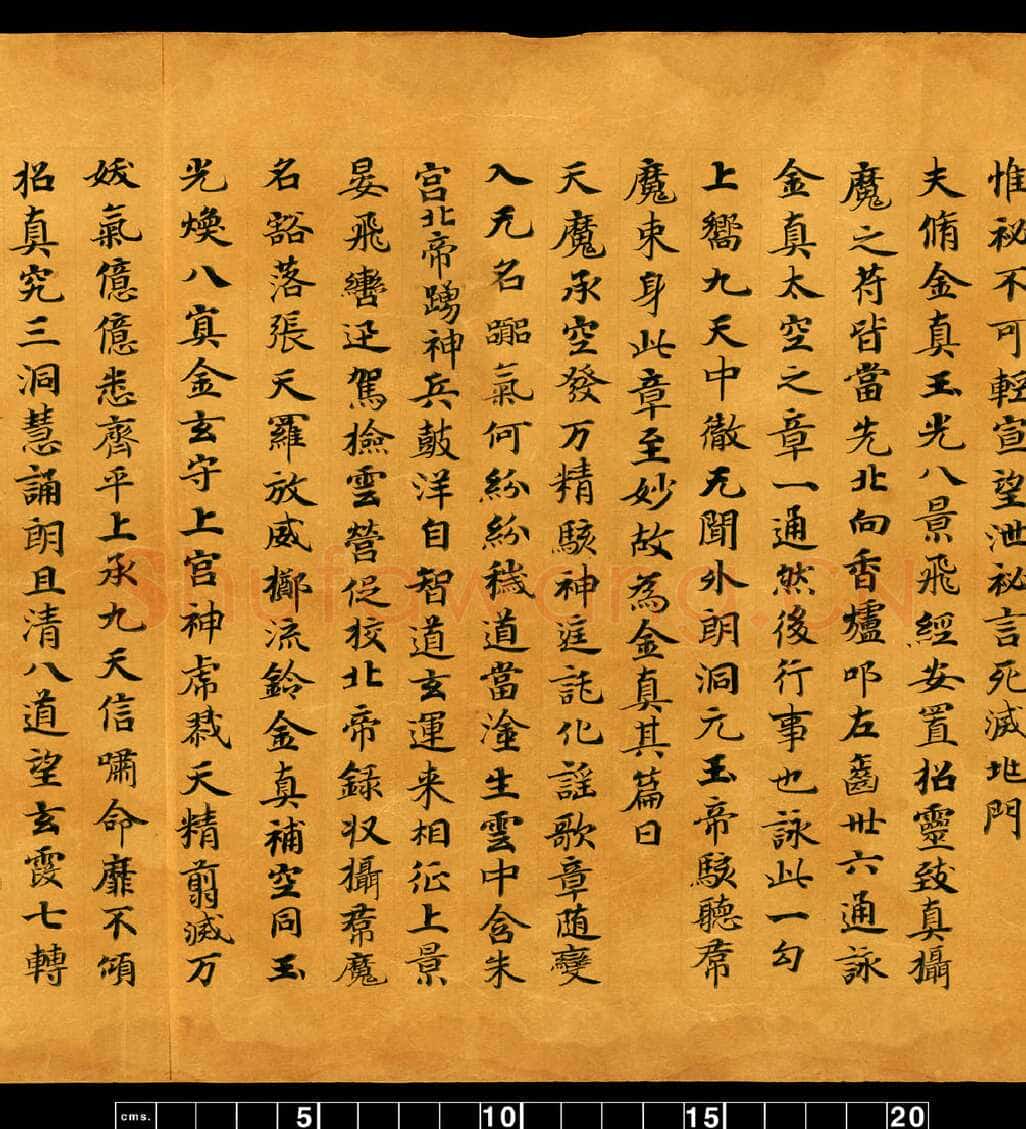 惟祕不可輕宣望泄祕言死滅地門
夫脩金真玉光八景飛經安置招靈致真攝
魔之苻皆當先北向香爐叩左齒卅六通詠
金真太空之章一通然後行事也詠此一句
上嚮九天中徹无聞外朗洞元玉帝駭聽羣
魔束身此章至妙故為金真其篇曰
天魔承空發万精駭神遐託化謡歌章随變
入无名 氣何紛紛穢道當塗生雲中含朱
宫北帝踴神兵鼓洋自智道玄運来相征上景
晏飛轡迅駕撿雲營促校北帝錄収攝羣魔
名豁落張天羅放威擲流鈴金真補空同玉
光煥八冥金玄守上宫神虎 天精翦滅万
妖氣億億悉齊平上承九天信嘯命靡不傾
招真究三洞慧誦朗且清八道望玄霞七轉
Shufawang.CN
cms. 5 10 15 20